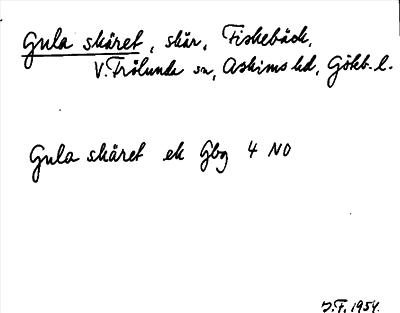 Gula skäret, skär, Fiskebäck,
V. Frölunda sn, Askims hd, Götb. l.
Gula skäret ek Gbg 4 NO
J.F. 1954.